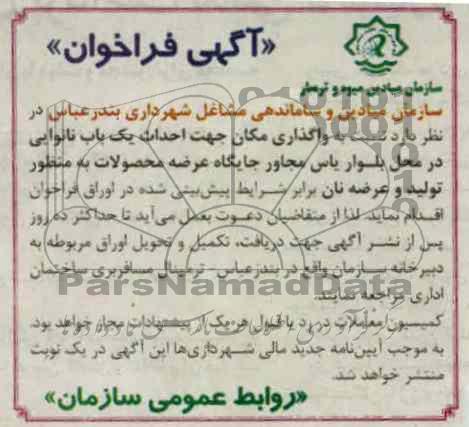 «آگهی فراخوان»
سازمان میادین میوه و تره‌بار
سازمان میادین و ساماندهی مشاغل شهرداری بندرعباس در
نظر دارد نسبت به واگذاری مکان جهت احداث یک باب نانوایی
در محل بلوار یاس مجاور جایگاه عرضه محصولات به منظور
تولید و عرضه نان برابر شرایط پیش‌بینی شده در اوراق فراخوان
اقدام نماید. لذا از متقاضیان دعوت بعمل می‌آید تا حداکثر ده روز
پس از نشر آگهی جهت دریافت، تکمیل و تحویل اوراق مربوطه به
دبیرخانه سازمان واقع در بندرعباس- ترمینال مسافربری ساختمان
اداری مراجعه نمایند.
کمیسیون معاملات در رد یا قبول هر یک از پیشنهادات مجاز خواهد بود.
به موجب آیین‌نامه جدید مالی شهرداری‌ها این آگهی در یک نوبت
منتشر خواهد شد.
«روابط عمومی سازمان»
ParsNamadData